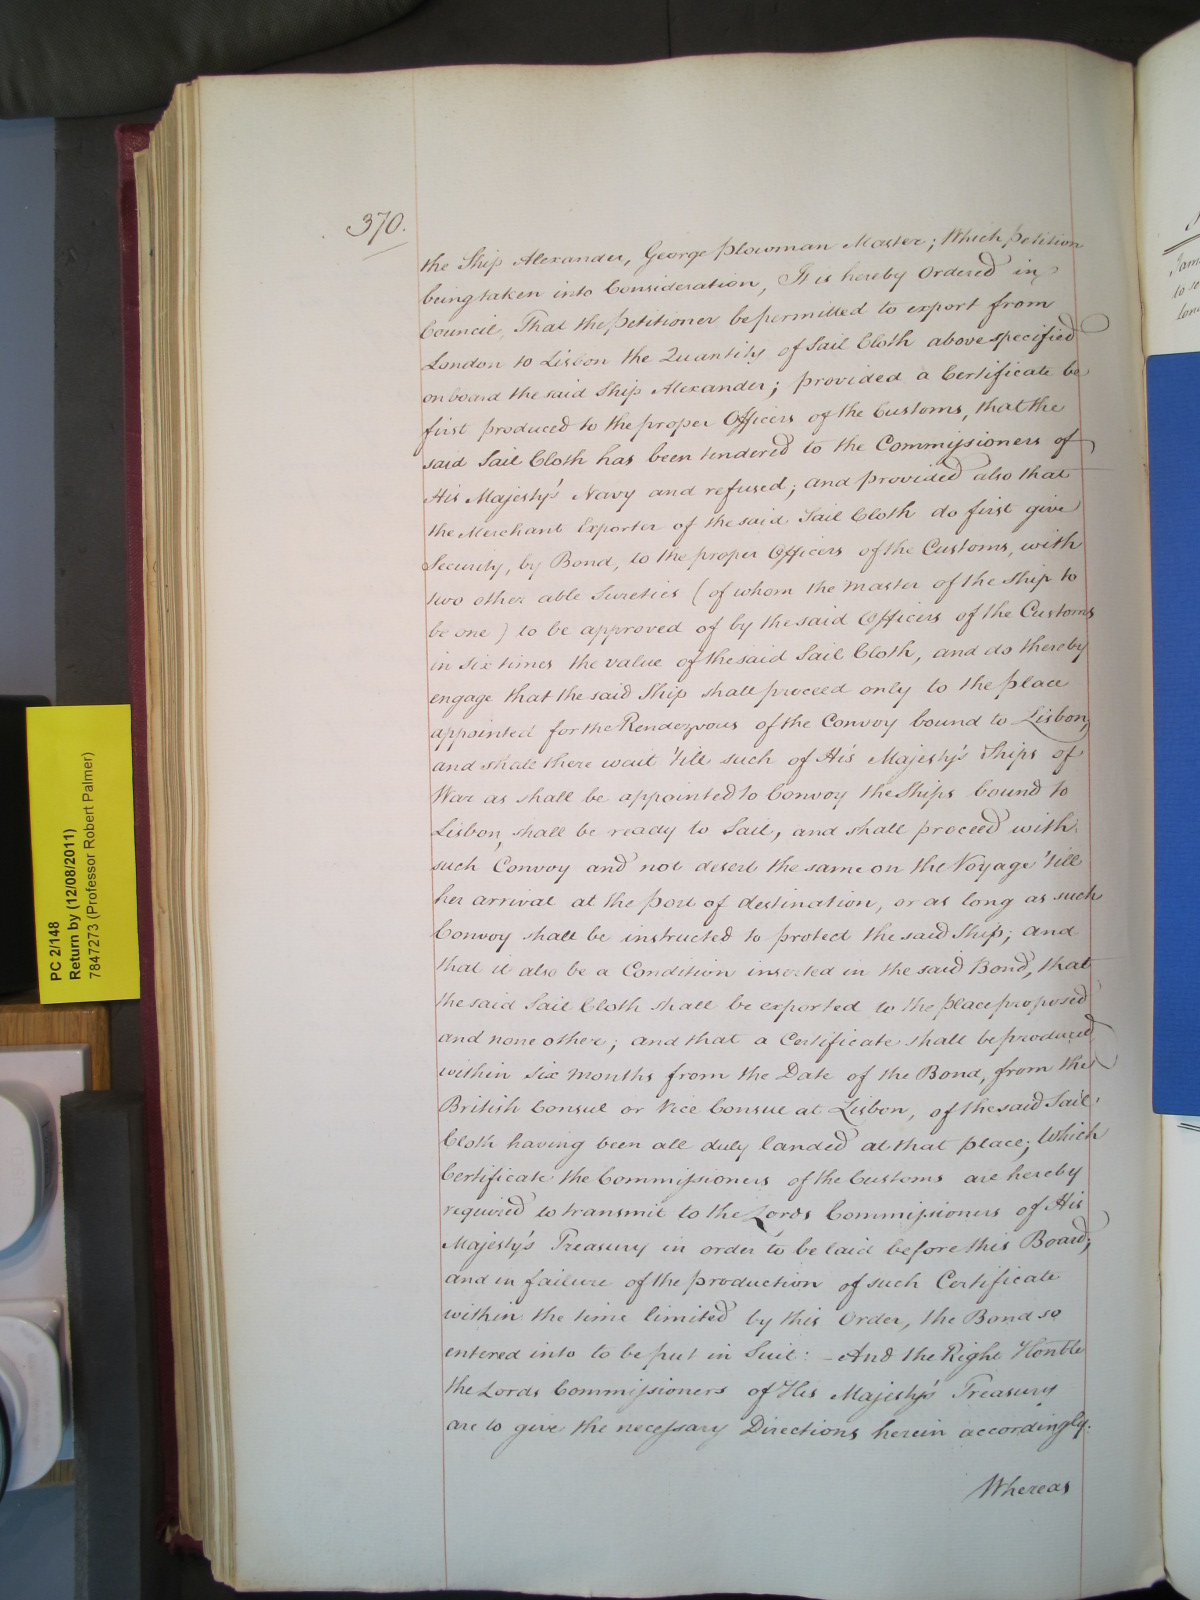 370.
the Ship Alexander, George Plowman Master; Which Petition
being taken into Consideration, It is hereby Ordered in
Council, That the Petitioner be permitted to export from
London to Lisbon the Quantity of Sail Cloth above specified
on board the said Ship Alexander; provided a Certificate be
first produced to the proper Officers of the Customs, that the
said Sail Cloth has been tendered to the Commissioners of
His Majesty's Navy and refused; and provided also that
the Merchant Exporter of the said Sail Cloth do first give
Security, by Bond, to the proper Officers of the Customs, with
two other able Sureties (of whom the Master of the Ship to
be one) to be approved of by the said Officers of the Customs
in six times the value of the said Sail Cloth, and do thereby
engage that the said Ship shall proceed only to the place
appointed for the Rendezvous of the Convoy bound to Lisbon,
and shall there wait 'till such of His Majesty's Ships of
War as shall be appointed to Convoy the Ships bound to
Lisbon, shall be ready to Sail, and shall proceed with
such Convoy and not desert the same on the Voyage 'till
her arrival at the port of destination, or as long as such
Convoy shall be instructed to protect the said Ship; and
that it also be a Condition inserted in the said Bond, that
the said Sail Cloth shall be exported to the place proposed
and none other; and that a Certificate shall be produced
within six Months from the Date of the Bond, from the
British Consul or Vice Consul at Lisbon, of the said Sail
Cloth having been all duly landed at that place; Which
Certificate the Commissioners of the Customs are hereby
required to transmit to the Lords Commissioners of His
Majesty's Treasury in order to be laid before this Board;
and in failure of the production of such Certificate
within the time limited by this Order, the Bond so
entered into to be put in Suit: - And the Right Honble
the Lords Commissioners of His Majesty's Treasury
are to give the necessary Directions herein accordingly.
Whereas
PC 2/148
Return by (12/08/2011)
7847273 (Professor Robert Palmer)